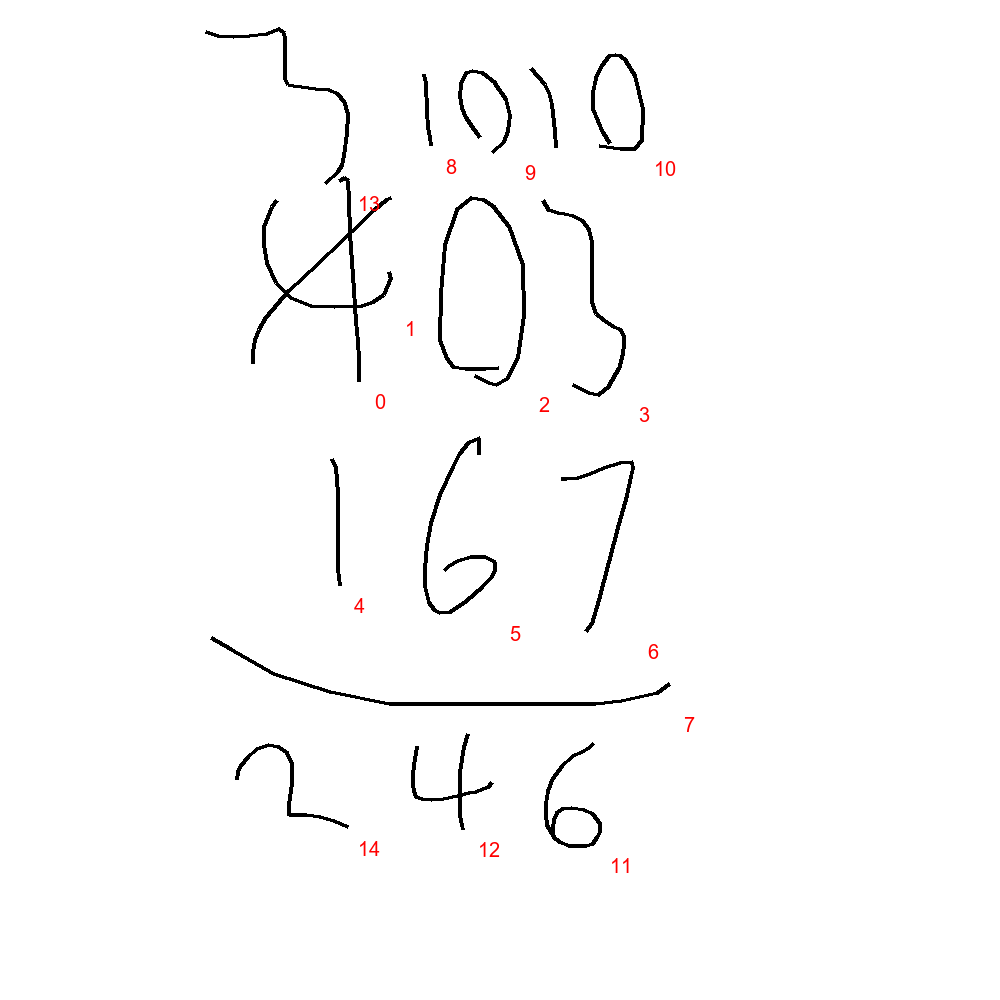 3 10 10
8 9 10
13
4 0 3
1
0 2 3
1 6 7
4 5 6
7
2 4 6
14 12 11